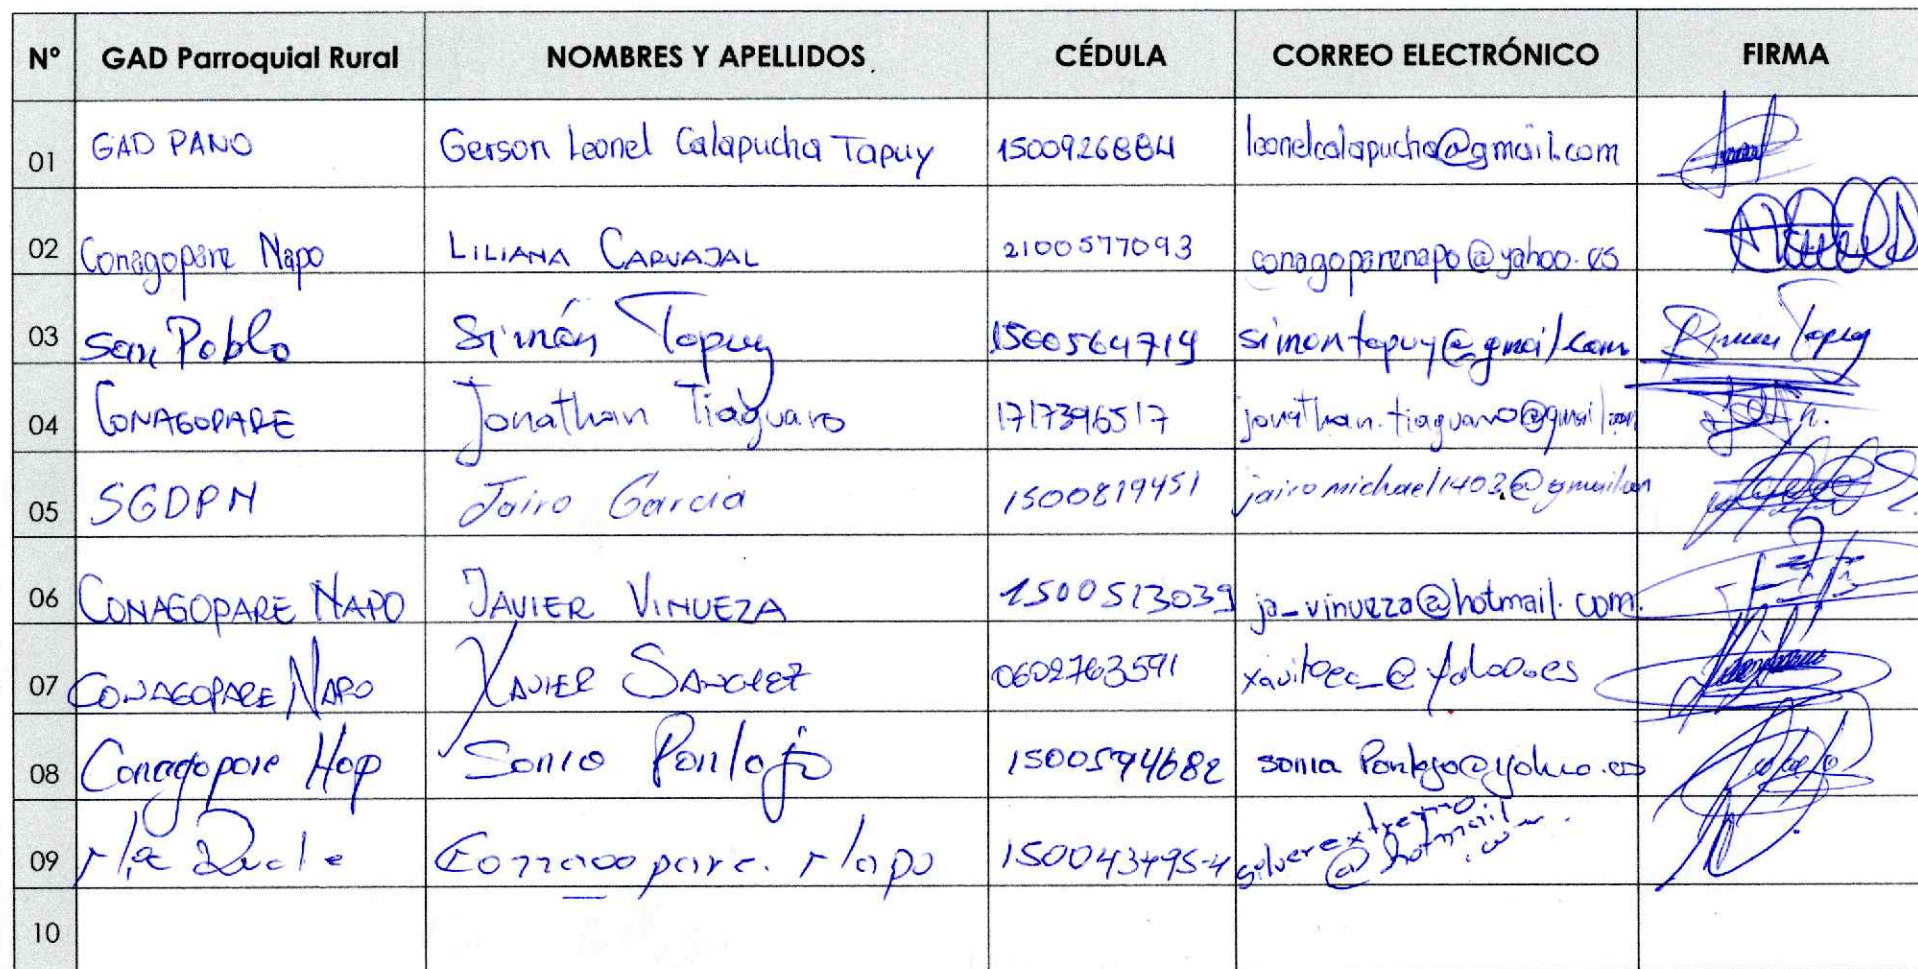 Nº GAD Parroquial Rural NOMBRES Y APELLIDOS CÉDULA CORREO ELECTRÓNICO FIRMA
01 GAD PANO Gerson Leonel Calapucha Tapuy 1500926884 leonelcalapucha@gmail.com
02 Conagopare Napo LILIANA CARVAJAL 2100577093 conagoparenapo@yahoo.es
03 San Pablo Simón Tapuy 1500564719 simontapuy@gmail.com Simon Tapuy
04 CONAGOPARE Jonathan Tiaguaro 1717396517 jonathan.tiaguaro@gmail.com
05 SGDPN Jairo Garcia 1500819451 jairomichael1403@gmail.com
06 CONAGOPARE NAPO JAVIER VINUEZA 1500513039 ja_vinueza@hotmail.com.
07 CONAGOPARE NAPO XAVIER SANCHEZ 0602763591
08 Conagopare Sonia 1500594682
09 Conagopare. Napo 150043495-4 @hotmail
10